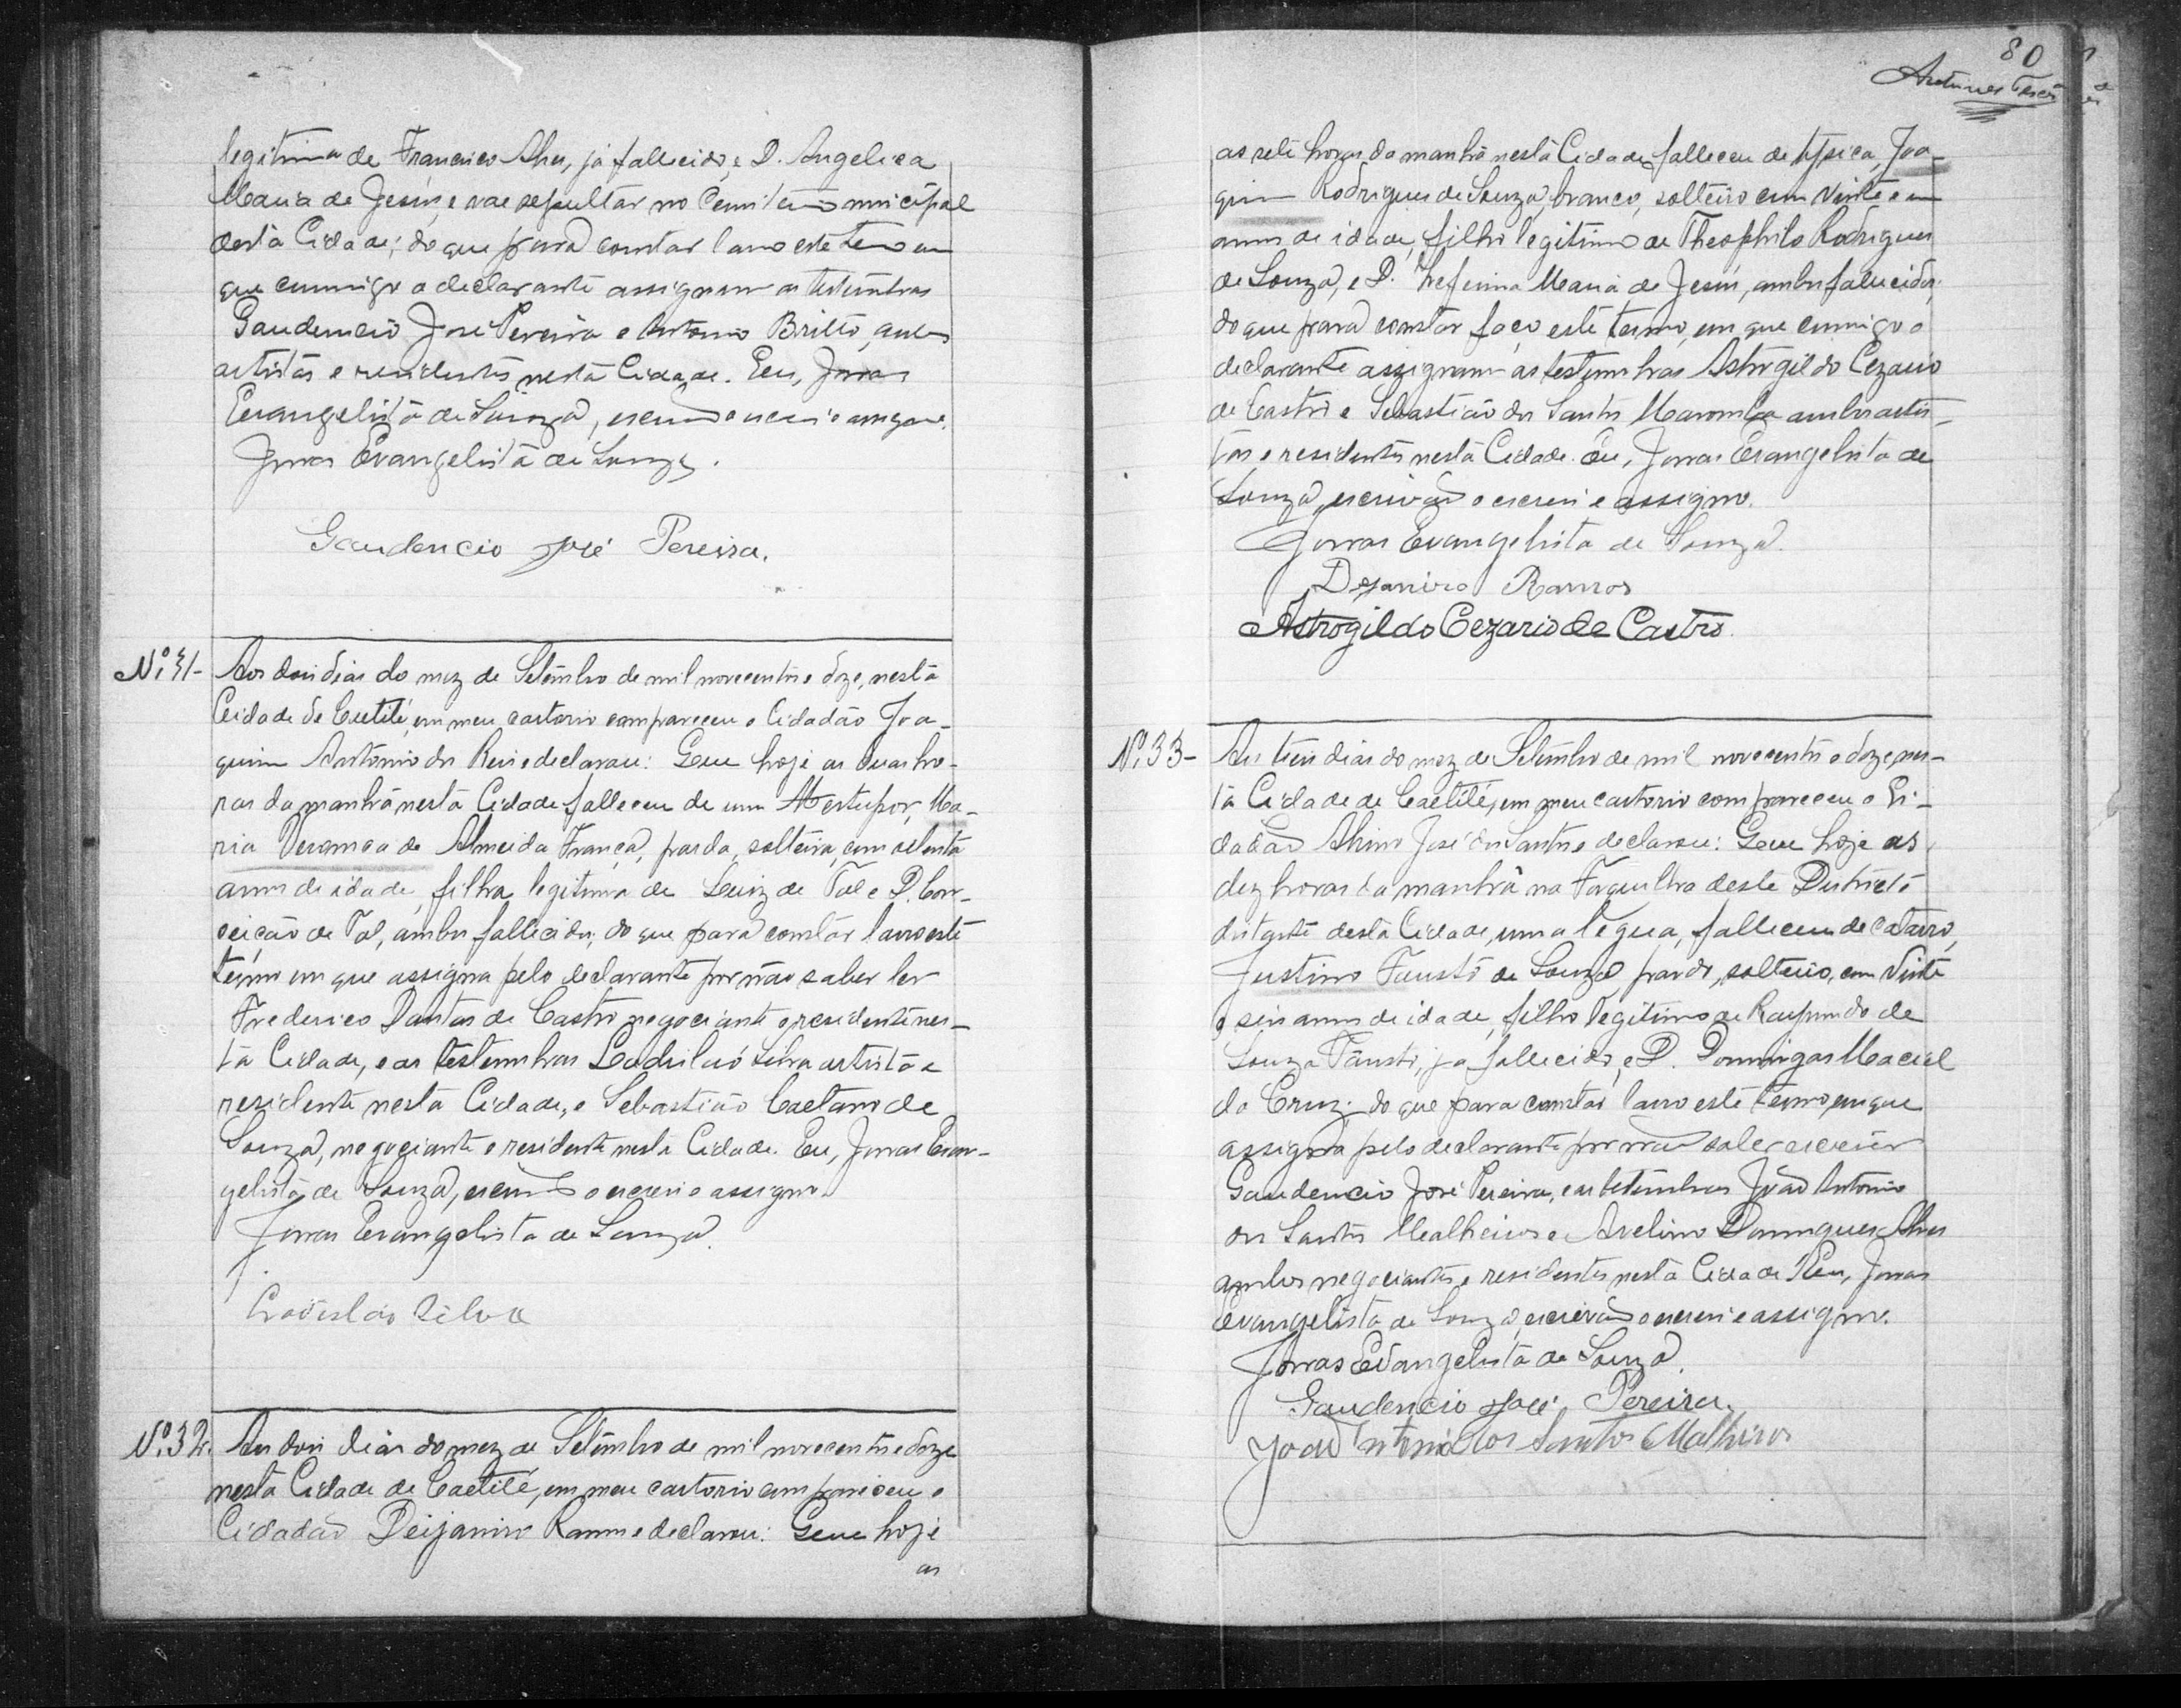 legitima de Francisco Alves, já fallecido, e D. Angelica
Maria de Jesus, e vae sepultar no Cemiterio municipal
desta Cidade; do que para constar lavro este termo em
que commigo o declarante assignam as testemunhas
Gaudencio José Pereira e Antonio Britto, ambos
artistas e residentes nesta Cidade. Eu, Jonas
Evangelista de Souza, escrivão o escrevi e assigno.
Jonas Evangelista de Souza.
Gaudencio José Pereira.
Nº 31- Aos dois dias do mez de Setembro de mil novecentos e doze, nesta
Cidade de Caetité, em meu cartorio compareceu o Cidadão Joa-
quim Antonio dos Reis e declarou: Que hoje as duas ho-
ras da manhã nesta Cidade falleceu de um estupor, Ma-
ria de Almeida França, parda, solteira, com oitenta
annos de idade, filha legitima de Luiz de Tal e D. Con-
ceição de Tal, ambos fallecidos; do que para constar lavro este
termo em que assigna pelo declarante por não saber ler
Frederico Dantas de Castro negociante e residente nes-
ta Cidade, e as testemunhas Ladislau Silva artista e
residente nesta Cidade, e Sebastião Caetano de
Souza, negociante e residente nesta Cidade. Eu, Jonas Evan-
gelista de Souza, escrivão o escrevi e assigno.
Jonas Evangelista de Souza.
Ladislao Silva
Nº 32. Aos dois dias do mez de Setembro de mil novecentos e doze
nesta Cidade de Caetité, em meu cartorio compareceu o
Cidadão Deijaniro Ramos e declarou: Que hoje
as
80
as sete horas da manhã nesta Cidade falleceu de tysica, Joa-
quim Rodrigues de Souza, branco, solteiro com vinte e um
annos de idade, filho legitimo de Theophilo Rodrigues
de Souza, e D. Maria de Jesus, ambos fallecidos;
do que para constar faço este termo, em que commigo o
declarante assignam as testemunhas Astrogildo Cezario
de Castro e Sebastião dos Santos ambos artis-
tas e residentes nesta Cidade. Eu, Jonas Evangelista de
Souza, escrivão o escrevi e assigno.
Jonas Evangelista de Souza.
Dejaniro Ramos
Astrogildo Cezario de Castro.
Nº 33- Aos tres dias do mez de Setembro de mil novecentos e doze, nes-
ta Cidade de Caetité, em meu cartorio compareceu o Ci-
dadão José dos Santos e declarou: Que hoje as
dez horas da manhã na Forquilha deste Districto
distante desta Cidade, uma legua, falleceu de catarro,
Justino Fausto de Souza, pardo, solteiro, com vinte
e seis annos de idade, filho legitimo de Raymundo de
Souza Fausto, já fallecido, e D. Domingas Maciel
da Cruz; do que para constar lavro este termo, em que
assigna pelo declarante por não saber escrever
Gaudencio José Pereira, e as testemunhas João Antonio
dos Santos Malheiros e Avelino Domingues Alves
ambos negociantes e residentes nesta Cidade. Eu, Jonas
Evangelista de Souza, escrivão o escrevi e assigno.
Jonas Evangelista de Souza.
Gaudencio José Pereira.
João Antonio dos Santos Malheiros